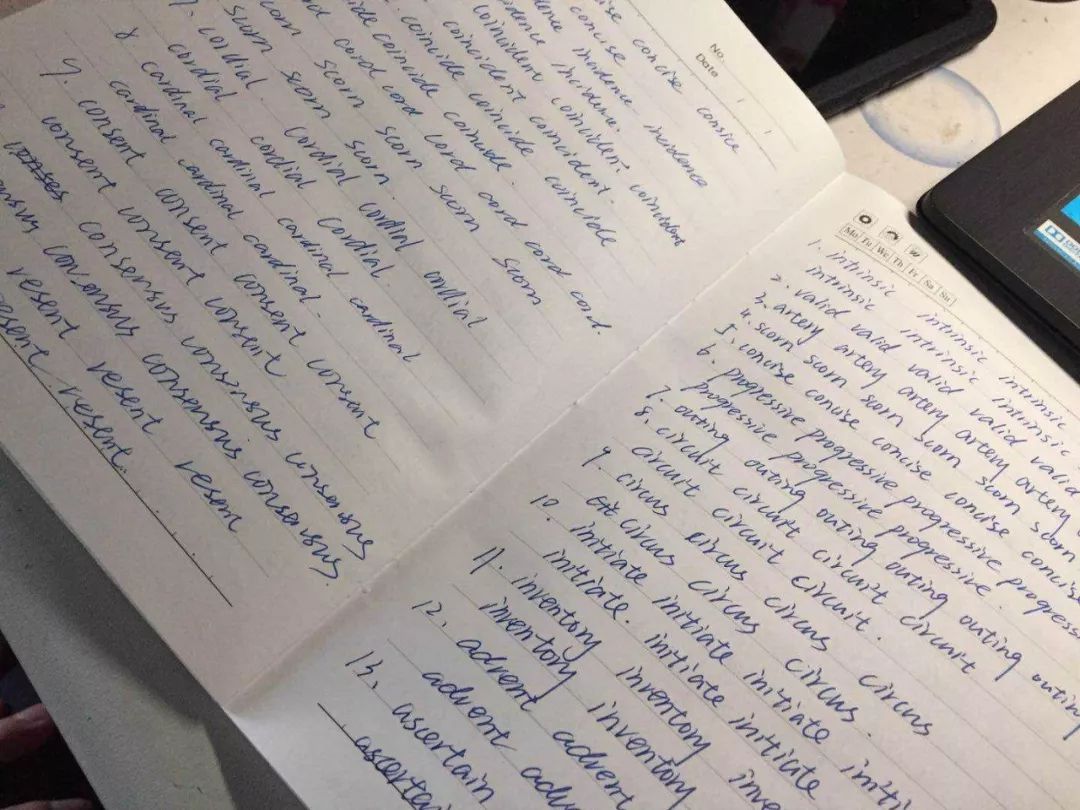 No.
Date
concise consice
incidence incidence
incidence incidence.
coincident coincident. coincident
coincident coincident.
coincide coincide coincide
coincide coincide.
cord cord cord cord cord.
scorn scorn scorn scorn
scorn scorn scorn.
7. cordial cordial cordial cordial
cordial cordial cordial
8 cardinal cardinal cardinal cardinal
cardinal cardinal cardinal.
9. consent consent consent consent
consent consent consent
consensus consensus consensus
consensus consensus consensus
resent resent resent
resent resent.
Mo Tu We Th Fr Sa Su
1. intrinsic intrinsic intrinsic
intrinsic intrinsic intrinsic
2. valid valid valid valid valid
3. artery artery artery artery artery
4. scorn scorn scorn scorn scorn scorn
5. concise concise concise concise concise
6. progressive progressive progressive progressive
progressive progressive progressive.
7. outing outing outing outing outing outing
8. circuit circuit circuit circuit
circuit circuit circuit.
9. circus circus circus circus
circus circus circus.
10. initiate initiate initiate
initiate. initiate initiate
11. inventory inventory
inventory inventory
12. advent advent
advent
13. ascertain